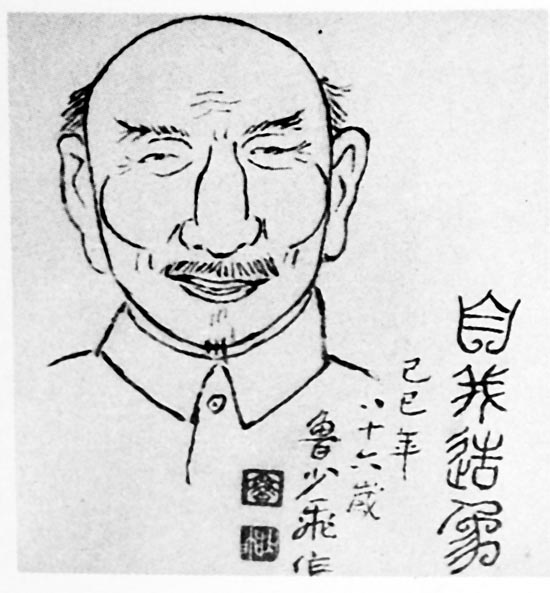 自我造像
己巳年
八十六歲
魯少飛作